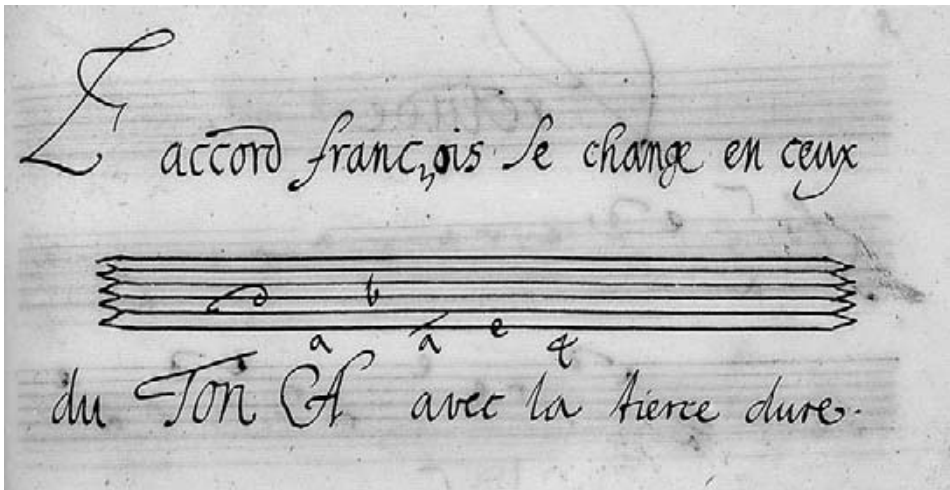 L accord franc,ois se change en ceux
d b
a a e 4
du Ton A avec la tierce dure.